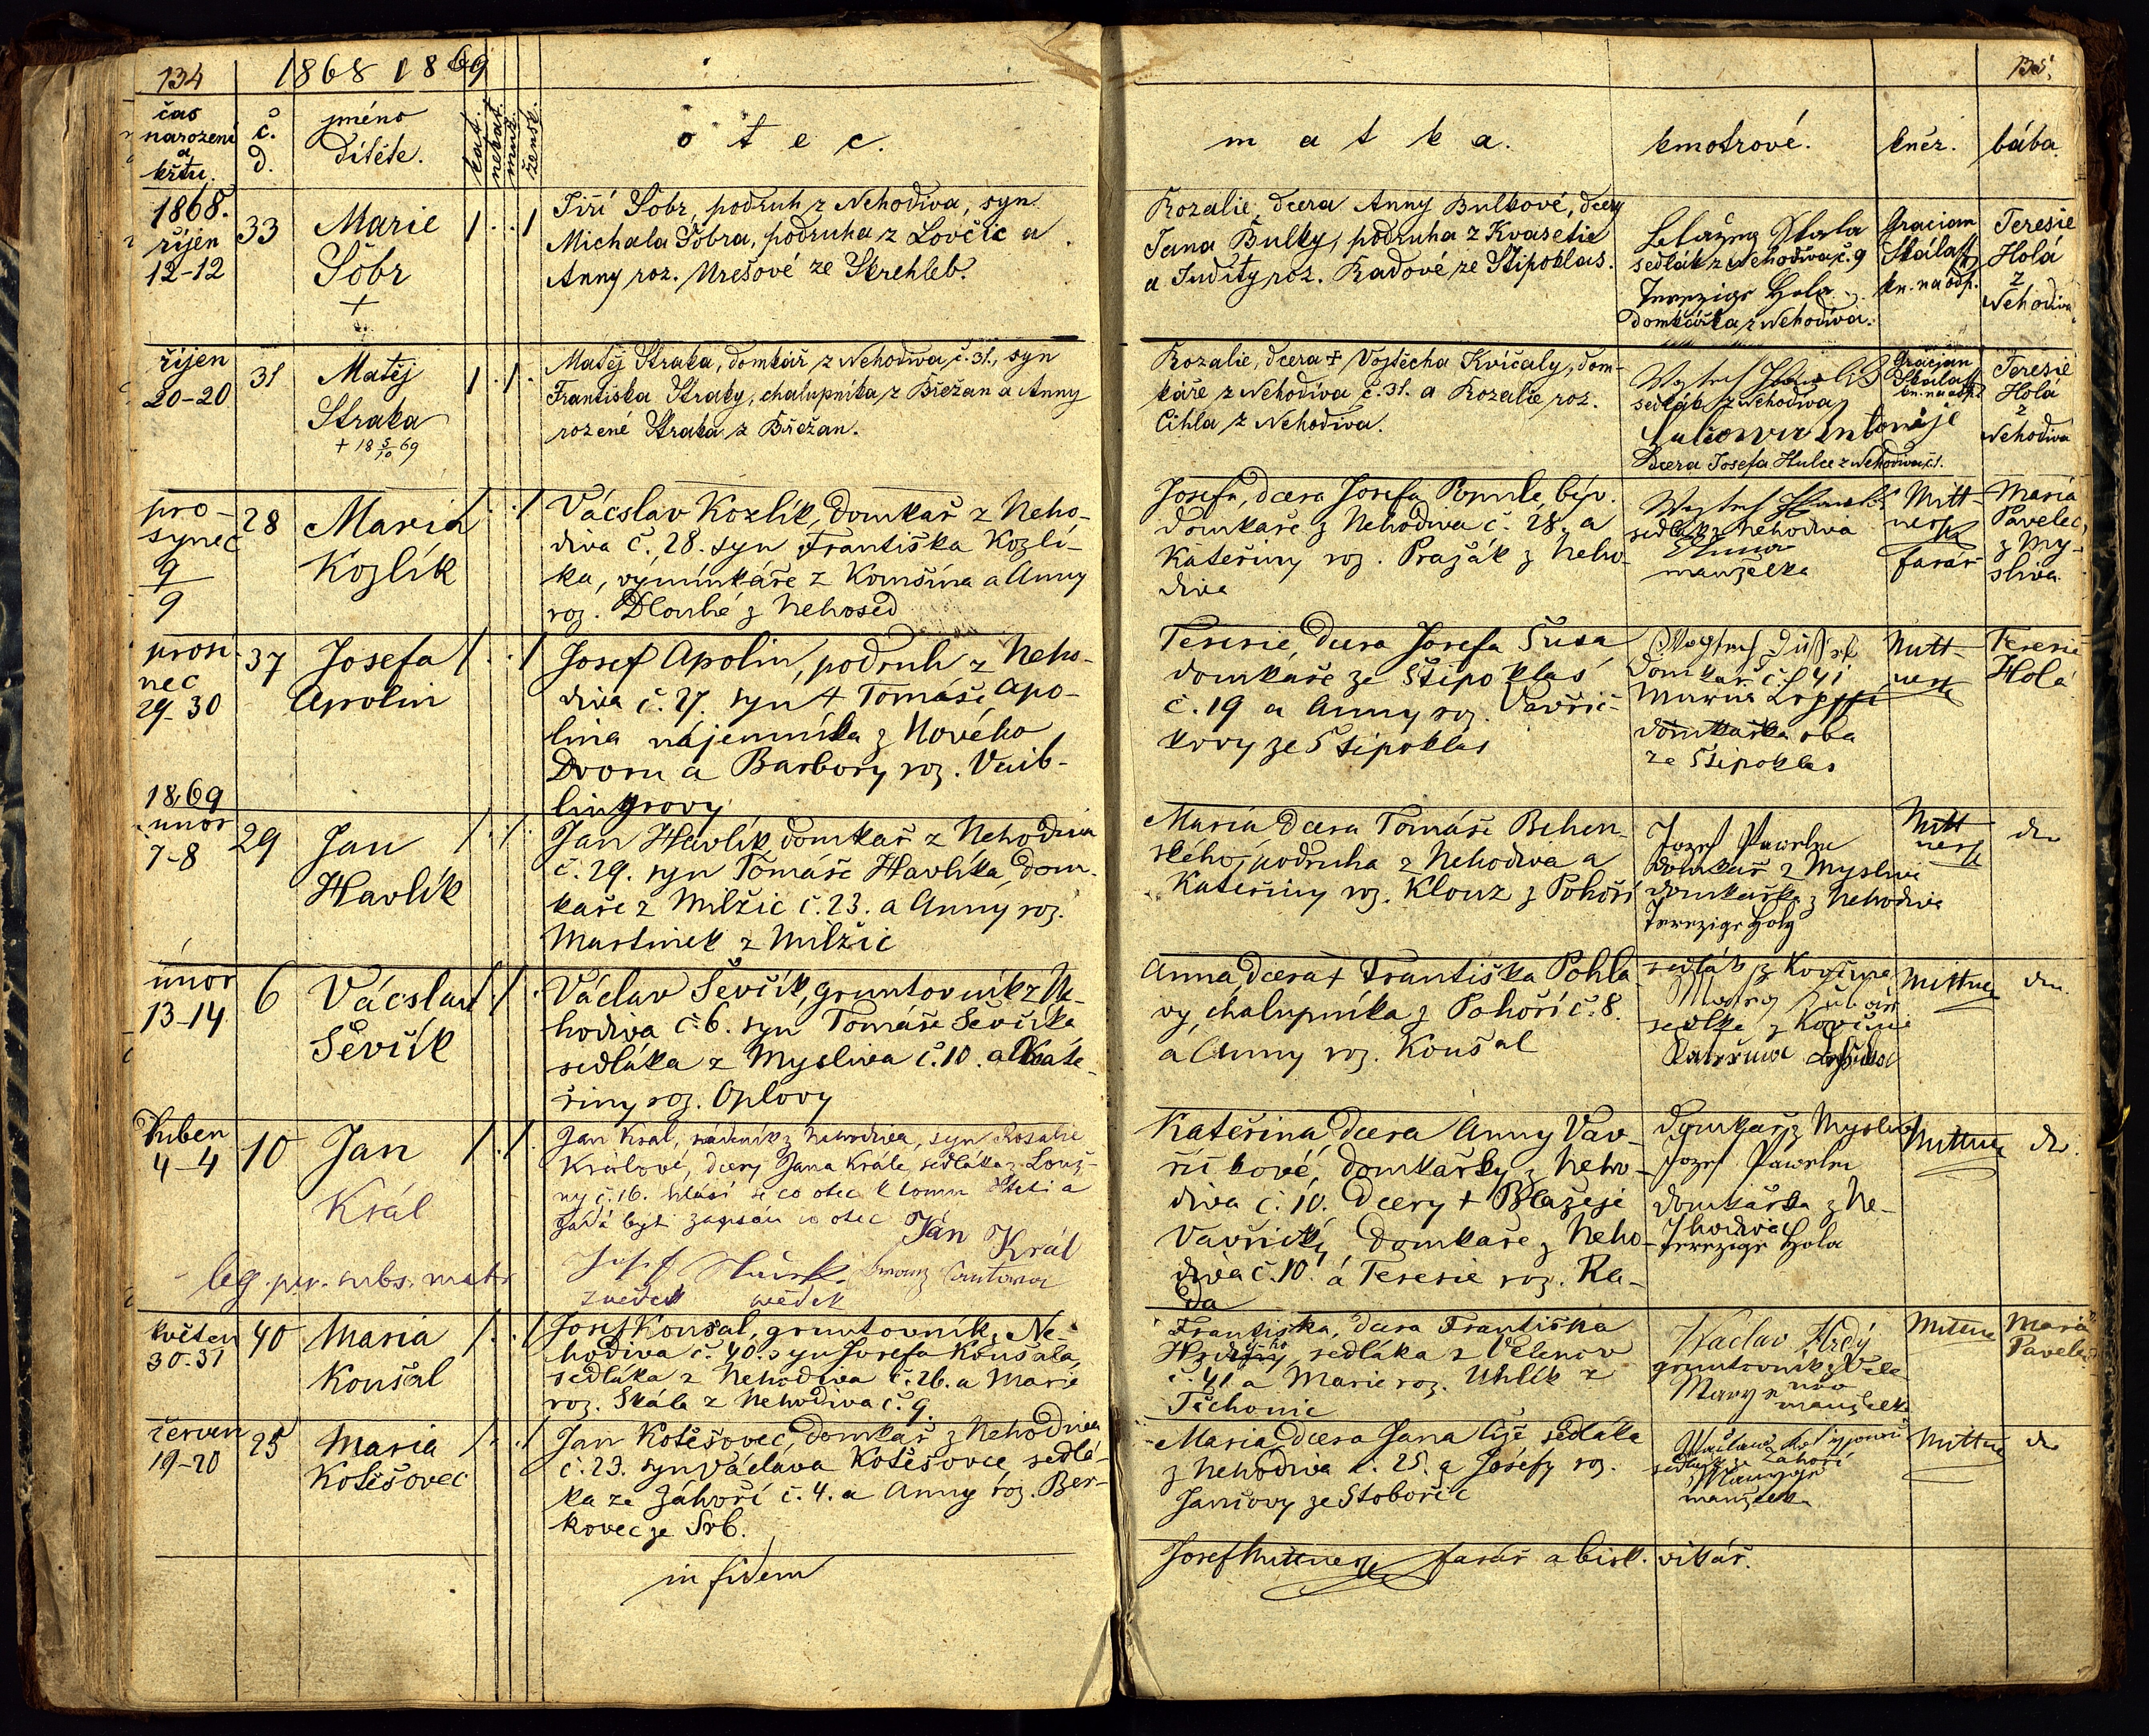 134
1868 1869
čas
narození
a
křtu.
č.
d.
jméno
dítěte.
kat.
nekat.
muž.
žensk.
otec.
matka.
kmotrové.
kněz.
bába.
135.
1868.
říjen
12-12
33
Marie
Šobr
+
1 . . 1
Jiří Šobr, podruh z Nehodiva, syn
Michala Šobra, podruha z Lovčic a
Anny roz. Urešové ze Strehleb.
Rozalie, dcera Anny Bulkové, dcery
Jana Bulky, podruha z Kvasetic
a Judity roz. Radové ze Štipoklas.
Blažeg Skala
sedlák z Nehodiva č. 9
Terezige Hola
domkářka z Nehodiva.
Gracian
Skála
kn. na odp.
Teresie
Holá
z
Nehodiva
říjen
20-20
31
Matěj
Straka
+ 18 5/10 69
1 . 1 .
Matěj Straka, domkář z Nehodiva, č. 31., syn
Františka Straky, chalupníka z Břežan a Anny
rozené Straka z Břežan.
Rozalie, dcera + Vojtěcha Kvíčaly, dom-
káře z Nehodiva č. 31. a Rozalie roz.
Cihla z Nehodiva.
sedlák z Nehodiva
dcera Josefa Hulce z Nehodiva č. 1.
Gracian
Skála
kn. na odp.
Teresie
Holá
z
Nehodiva
pro-
synec
9
9
28
Maria
Kozlík
1 . . 1
Vácslav Kozlík, domkař z Neho-
diva č. 28. syn Františka Kozlí-
ka, výminkáře z Komšína a Anny
roz. Dlouhé z Nehosed
Josefa, dcera Josefa Pomle, býv.
domkaře z Nehodiva č. 28. a
Kateřiny roz. Pražák z Neho-
diva
sedlák z Nehodiva
manzelka
Mitt-
ner
farář
Maria
Pavelec
z My-
sliva
prosi-
nec
29-30
37
Josefa
Apolin
1 . . 1
Josef Apolin, podruh z Neho-
diva č. 27. syn + Tomáše Apo-
lina nájemníka z Nového
Dvoru a Barbory roz. Vaib-
lingrovy
Teresie, dcera Josefa Šusa
domkaře ze Štipoklas
č. 19 a Anny roz. Vavřič-
kovy ze Štipoklas
domkař č. 41
domkařka oba
ze Štipoklas
Mitt-
ner
Teresie
Holá
1869
únor
7-8
29
Jan
Havlík
1 . 1 .
Jan Havlík, domkař z Nehodiva
č. 29. syn Tomáše Havlíka, dom-
kaře z Milžic č. 23. a Anny roz.
Martinek z Milžic
Maria dcera Tomáše Behen-
ského, podruha z Nehodiva a
Kateřiny roz. Klouz z Pohoří
Jozef Pawelec
domkař z Mysliwi
domkařka z Nehodiva
Terezige Holy
Mitt
ner
do
únor
13-14
6
Vácslav
Ševčík
1 . 1 .
Václav Ševčík, gruntovník z Ne-
hodiva č. 6. syn Tomáše Ševčíka
sedláka z Mysliwa č. 10. a Kate-
řiny roz. Oplovy
Anna, dcera + Františka Pohla-
vy, chalupníka z Pohoří č. 8.
a Anny roz. Koušal
sedlák z Kovčína
sedlka z Kovčína
Mittner
do.
duben
4-4
10
Jan
Král
1 . 1 .
Jan Král, nádeník z Nehodiva, syn Rosalie
Králové, dcery Jana Krále, sedláka z Louž-
ny č. 16. hlásí se co otec k tomu dítěti a
žádá býti zapsán co otec Jan Král
leg. per. subs. matr.
svědek svědek
Kateřina dcera Anny Vav-
řičkové, domkářky z Neho-
diva č. 10. dcery + Blažeje
Vavřičky, domkaře z Neho-
diva č. 10. a Teresie roz. Ra-
da
domkař z Mysliva
Jozef Pawelec
domkářka z Ne-
hodiva
Terezige Hola
Mittner
do.
květen
30-31
40
Maria
Koušal
1 . . 1
Josef Koušal, gruntovník z Ne-
hodiva č. 40. syn Josefa Koušala,
sedláka z Nehodiva č. 26. a Marie
roz. Skála z Nehodiva č. 9.
Františka, dcera Františka
Hrdého, sedláka z Velenov
č. 41 a Marie roz. Uhlík z
Těchonic
Waclav Hrdý
gruntovník z Vele-
nov
manzelka
Mittner
Maria
Pavelec
červen
19-20
25
Maria
Kotěšovec
1 . . 1
Jan Kotěšovec, domkař z Nehodiva
č. 23. syn Václava Kotěšovce sedlá-
ka ze Záhoří č. 4. a Anny roz. Ber-
kovec ze Srb.
Maria, dcera Jana Cíž sedláka
z Nehodiva č. 25. a Josefy roz.
Jančovy ze Stobořic
sedlák ze Záhoří
manzelka
Mittner
do
in fidem
Josef Mittner farář a bisk. vikář.